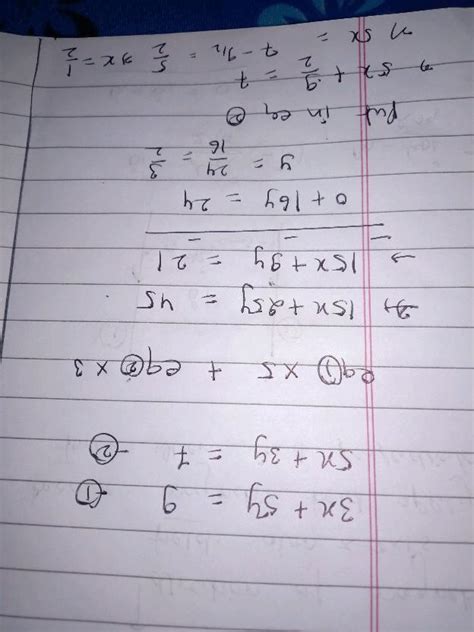 3x + 5y = 9 - ①
5x + 3y = 7 - ②
eq① × 5 + eq② × 3
→ 15x + 25y = 45
→ 15x + 9y = 21
- - -
0 + 16y = 24
y = 24/16 = 3/2
Put in eq ②
→ 5x + 9/2 = 7
→ 5x = 7 - 9/2 = 5/2 → x = 1/2